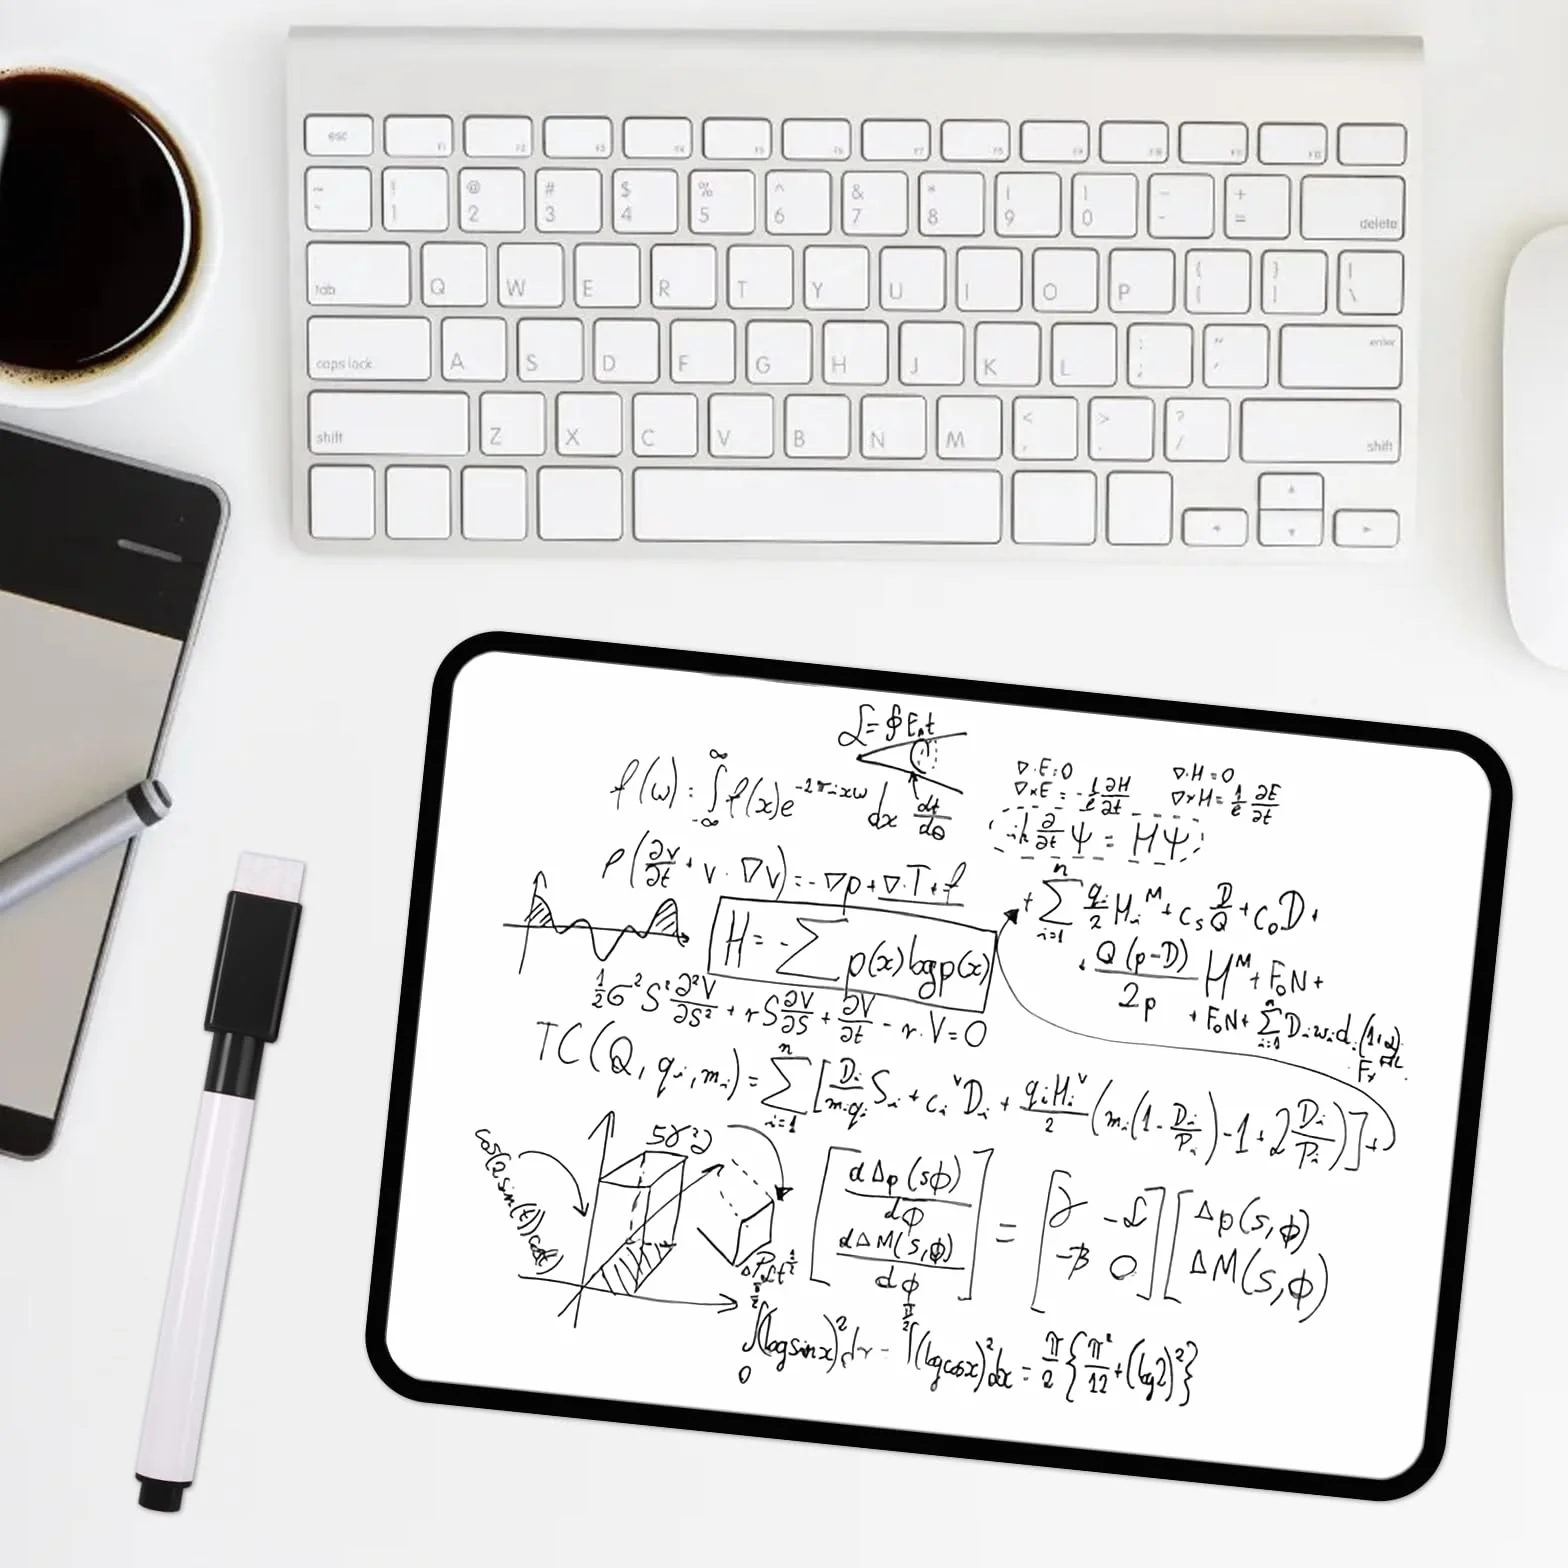 esc F1 F2 F3 F4 F5 F6 F7 F8 F9 F10 F11 F12
~ ` ! 1 @ 2 # 3 $ 4 % 5 ^ 6 & 7 * 8 ( 9 ) 0 _ - + = delete
tab Q W E R T Y U I O P { [ } ] | \
caps lock A S D F G H J K L : ; " ' enter
shift Z X C V B N M < , > . ? / shift
f(ω) = ∫_{-∞}^{∞} f(x)e^{-2πixω} dx dt/dθ
∇·E=0 ∇·H=0
∇×E = -1/c ∂H/∂t ∇×H = 1/c ∂E/∂t
iħ ∂/∂t Ψ = HΨ
ρ(∂v/∂t + v·∇v) = -∇p + ∇·T + f
H = -∑ p(x) log p(x)
+ ∑_{i=1}^{n} q_i/2 H_i^M + c_s D/Q + c_0 D +
+ Q(p-D)/2p H^M + F_0N +
½σ²S² ∂²V/∂S² + rS ∂V/∂S + ∂V/∂t - r·V = 0
TC(Q, q_i, m_i) = ∑_{i=1}^{n} [D_i/(m_i q_i) S_i + c_i^v D_i + q_i H_i^v/2 (m_i(1 - D_i/P_i) - 1 + 2 D_i/P_i)] +
[dΔp(sϕ)/dϕ dΔM(s,ϕ)/dϕ] = [γ -L -β 0] [Δp(s,ϕ) ΔM(s,ϕ)]
∫_0^{π/2} (log sin x)² dx = ∫^{π/2} (log cos x)² dx = π/2 {π²/12 + (log 2)²}